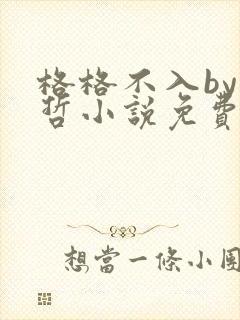 格格不入by
哲小說免費
想當一條小團